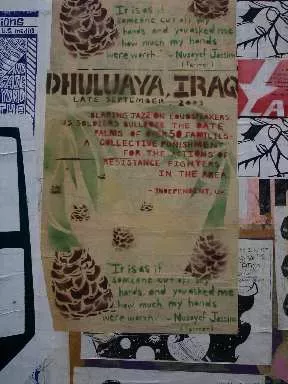 It is as if
someone cut off my
hands and you asked me
how much my hands
were worth. - Nusayef Jassim
(farmer)
DHULUAYA, IRAQ
LATE SEPTEMBER 2003
BLARING JAZZ ON LOUDSPEAKERS
US SOLDIERS BULLDOZE THE DATE
PALMS OF OVER 50 FAMILIES.
A COLLECTIVE PUNISHMENT
FOR THE ACTIONS OF
RESISTANCE FIGHTERS
IN THE AREA.
- INDEPENDENT, U.K.
It is as if
someone cut off my
hands and you asked me
how much my hands
were worth. - Nusayef Jassim
(farmer)